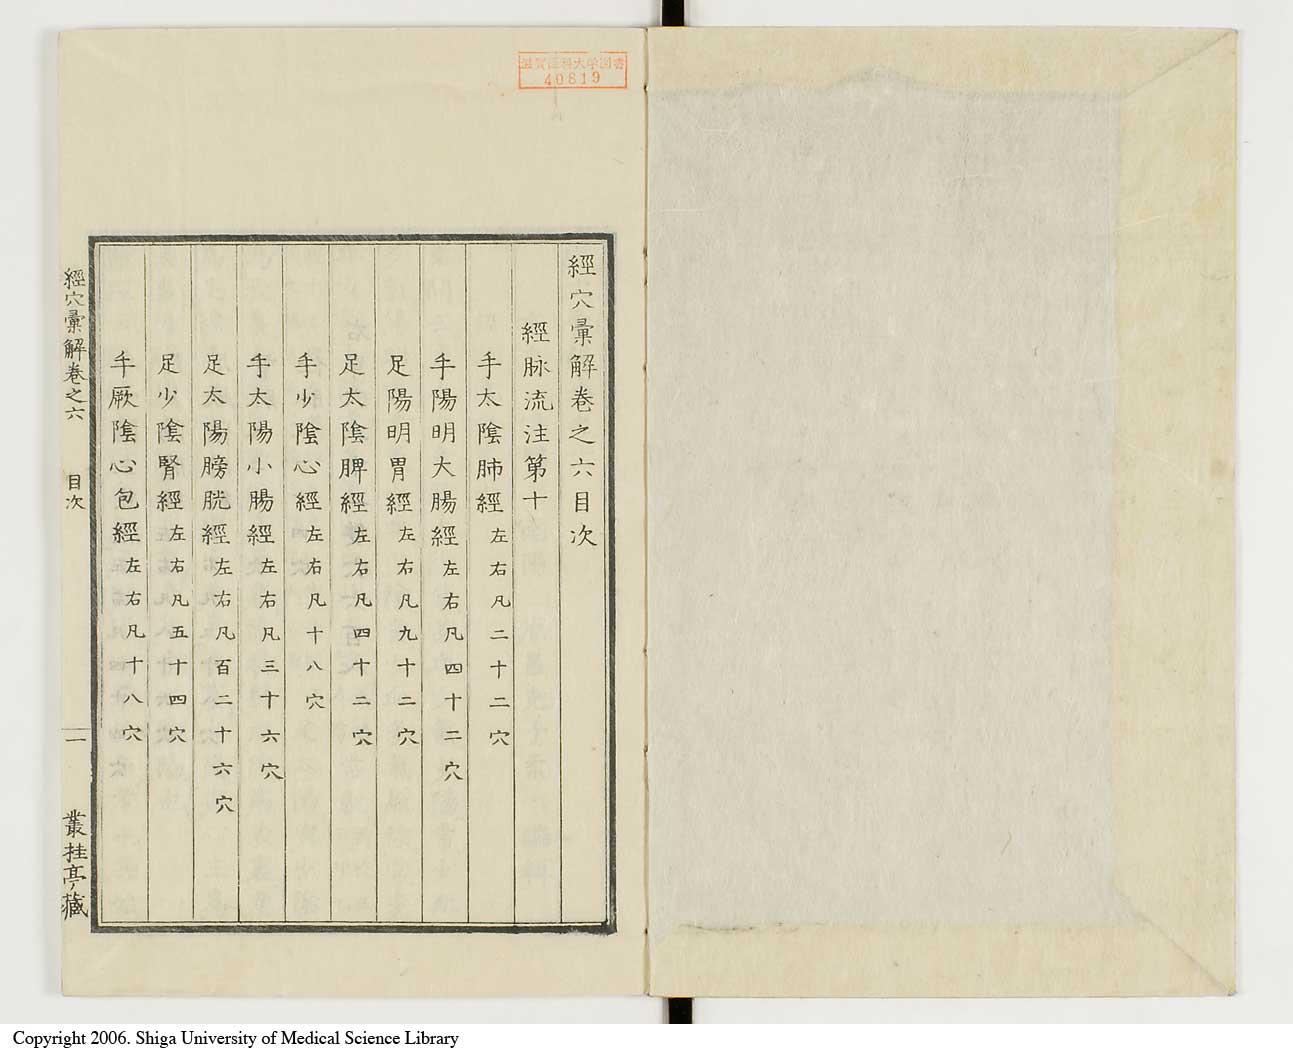 滋賀医科大学図書
40819
經穴彙解卷之六目次
經脉流注第十
手太陰肺經左右凡二十二穴
手陽明大腸經左右凡四十二穴
足陽明胃經左右凡九十二穴
足太陰脾經左右凡四十二穴
手少陰心經左右凡十八穴
手太陽小腸經左右凡三十六穴
足太陽膀胱經左右凡百二十六穴
足少陰腎經左右凡五十四穴
手厥陰心包經左右凡十八穴
經穴彙解卷之六 目次 一 叢桂亭藏
Copyright 2006. Shiga University of Medical Science Library